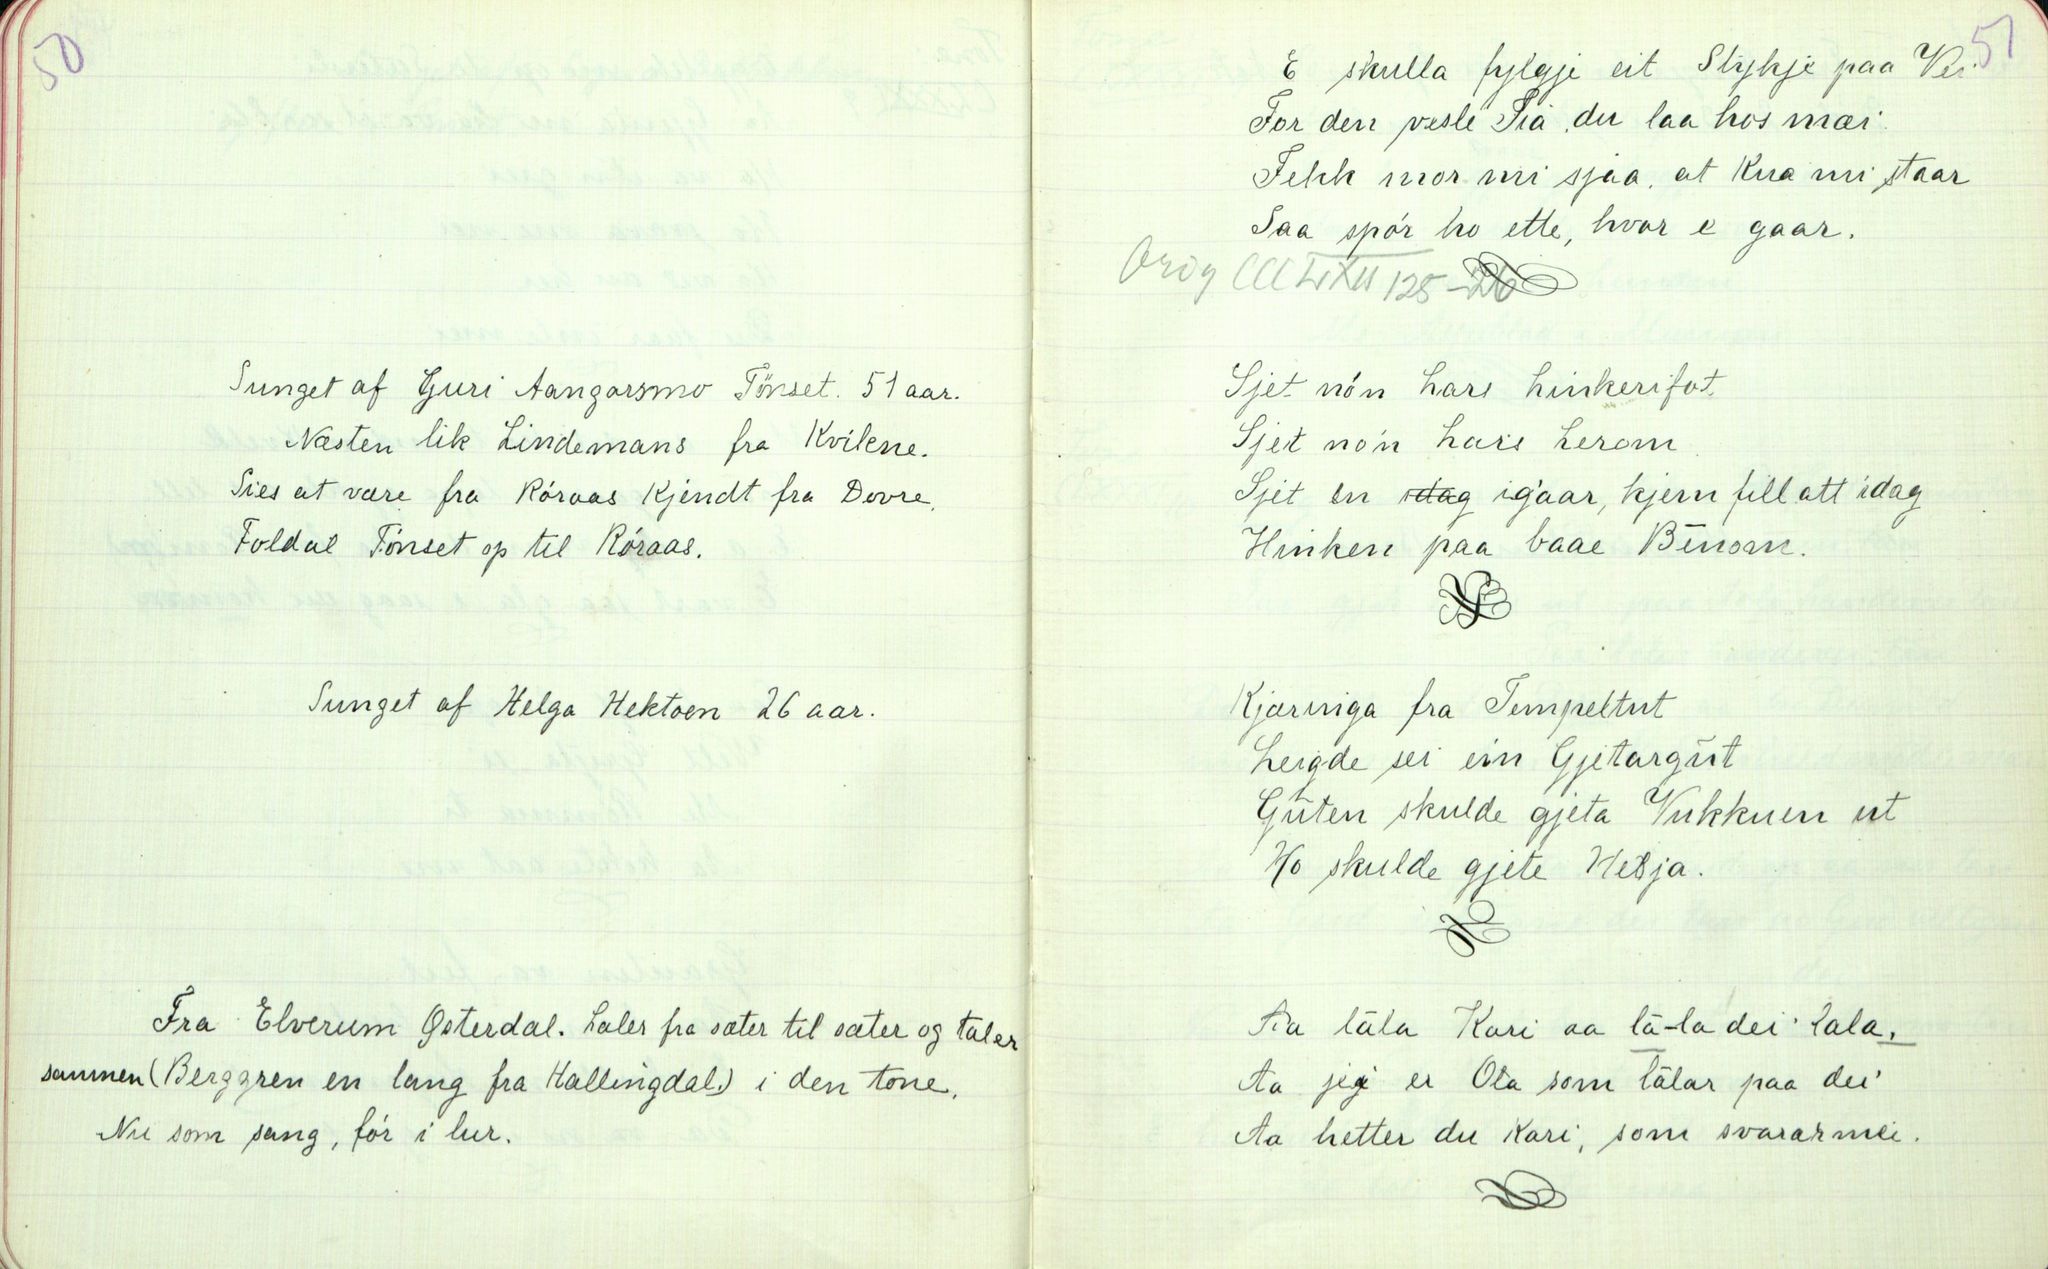 50
Sunget af Guri Aangarsmo Tönset. 51 aar.
Næsten lik Lindemans fra Kvikne.
Sies at være fra Röraas kjendt fra Dovre,
Foldal Tönset op til Röraas.
Sunget af Helga Hektoen 26 aar.
Fra Elverum Østerdal. Laler fra sæter til sæter og taler
sammen (Berggren en lang fra Hallingdal) i den tone.
Nu som sang, för i lur.
51
E skulla fylgje eit Stykje paa Vei
For den vesle Tia, du laa hos mæi.
Fekk mor mi sjaa, at Kua mi staar
Saa spör ho ette, hvar e gaar.
Orig CCCLXXII 125-26
Sjet nón hars hinkerifot
Sjet nón hars herom
Sjet en idag igaar, kjem fill att idag
Hinken paa baae Bēnom.
Kjæringa fra Tempeltut
Leigde sei ein Gjetargūt
Gūten skulde gjeta Vukkuen ut
Ho skulde gjete Hesja.
Aa lāla Kari aa lā-la dei lala.
Aa jeg er Ola som lālar paa dei
Aa hetter du Kari, som svarar mei.